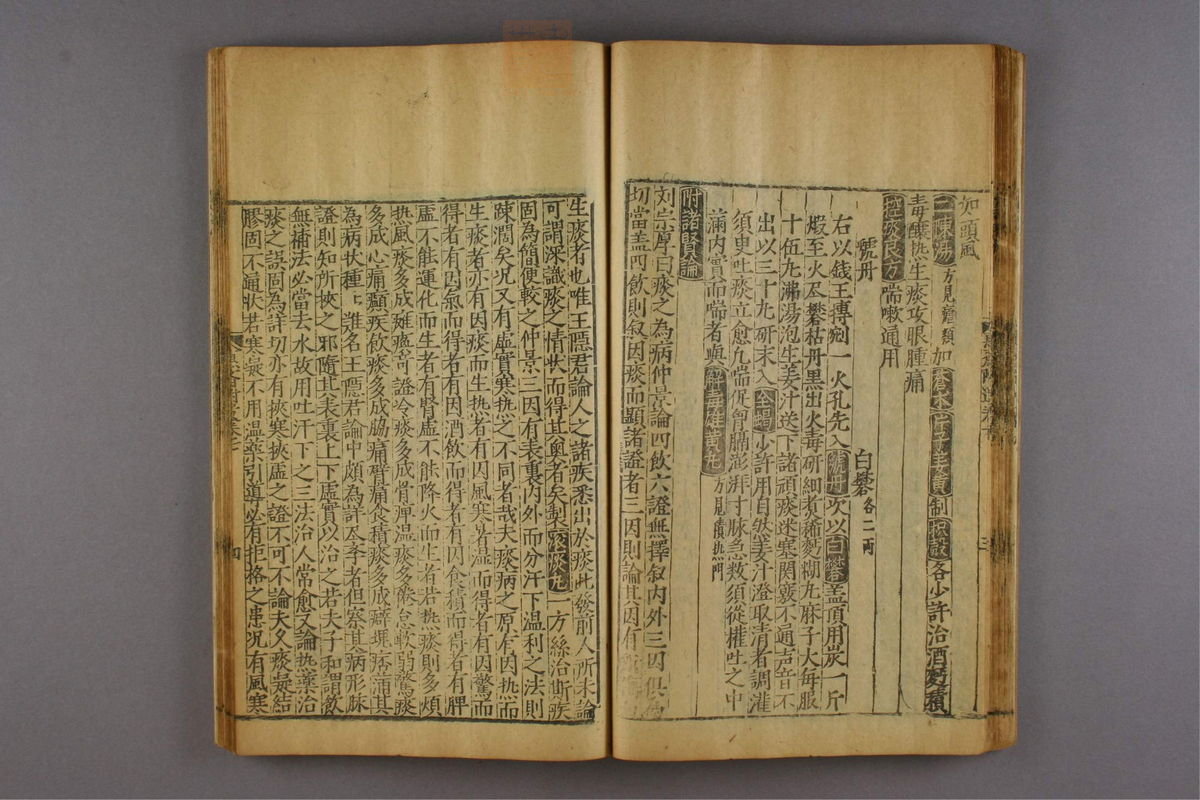 如頭風
二陳湯 方見痰類 加 蒼朮 片子姜黃 制 枳殼 各少許治酒麪積
毒釀热生痰攻眼腫痛
控痰良方 喘嗽通用
號丹 白礬 各二兩
右以錢王摶剜一火孔先入 號丹 次以 白礬 盖頂用炭一斤
煅至火尽礬枯丹黑出火毒研細煮稀麪糊丸麻子大每服
十伍丸沸湯泡生姜汁送下諸頑痰迷塞関竅不通声音不
出以三十丸研末入 全蝎 少許用自然姜汁澄取清者調灌
須臾吐痰立愈凢喘促胷膈澎湃寸脉急数須從權吐之中
滿内實而喘者與 解毒雄黃丸 方見積热門
附諸賢論
刘宗厚曰痰之為病仲景論四飲六證無擇叙内外三因俱
切當盖四飲則叙因痰而顯諸證者三因則論其因有
生痰者也唯王隠君論人之諸疾悉出於痰此發前人所未論
可謂深識痰之情状而得其奧者矣製 滾痰丸 一方総治斯疾
固為簡便較之仲景三因有表裏内外而分汗下温利之法則
踈濶矣况又有虚實寒热之不同者哉夫痰病之原有因热而
生痰者亦有因痰而生热者有因風寒暑温而得者有因驚而
得者有因氣而得者有因酒飲而得者有因食積而得者有脾
虚不能運化而生者有腎虚不能降火而生者若热痰則多煩
热風痰多成癱瘓奇證冷痰多成骨痹温痰多倦怠軟弱驚痰
多成心痛癲疾飲痰多成脇痛臂痛食積痰多成癖塊痞滿其
為病状種〻难名王隠君論中頗為詳尽李者但察其病形脉
證則知所挾之邪隨其表裏上下虚實以治之若夫子和謂飲
無補法必當去水故用吐汗下之三法治人常愈又論热藥治
痰之誤固為詳切亦有挾寒挾虚之證不可不論夫久痰凝結
膠固不通状若寒凝不用温藥引導必有拒格之患况有風寒